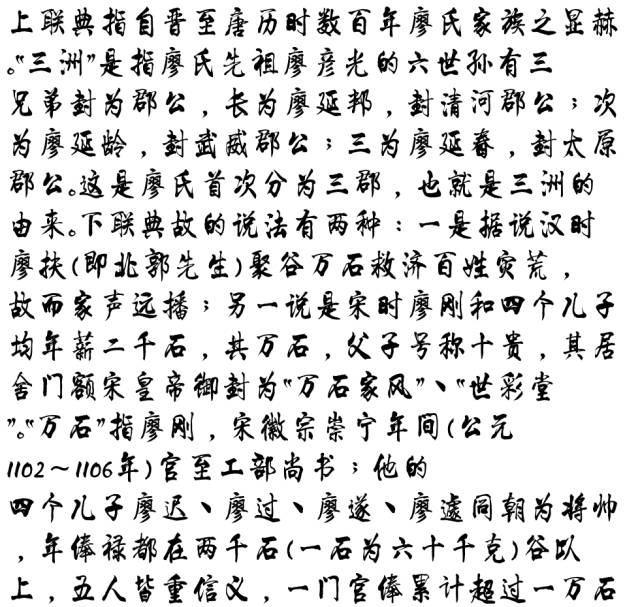 上联典指自晋至唐历时数百年廖氏家族之显赫
。“三洲”是指廖氏先祖廖彦光的六世孙有三
兄弟封为郡公，长为廖延邦，封清河郡公；次
为廖延龄，封武威郡公；三为廖延春，封太原
郡公。这是廖氏首次分为三郡，也就是三洲的
由来。下联典故的说法有两种：一是据说汉时
廖扶(即北郭先生)聚谷万石救济百姓灾荒，
故而家声远播；另一说是宋时廖刚和四个儿子
均年薪二千石，共万石，父子号称十贵，其居
舍门额宋皇帝御封为“万石家风”、“世彩堂
”。“万石”指廖刚，宋徽宗崇宁年间(公元
1102～1106年)官至工部尚书；他的
四个儿子廖迟、廖过、廖遂、廖遽同朝为将帅
，年俸禄都在两千石(一石为六十千克)谷以
上，五人皆重信义，一门官俸累计超过一万石